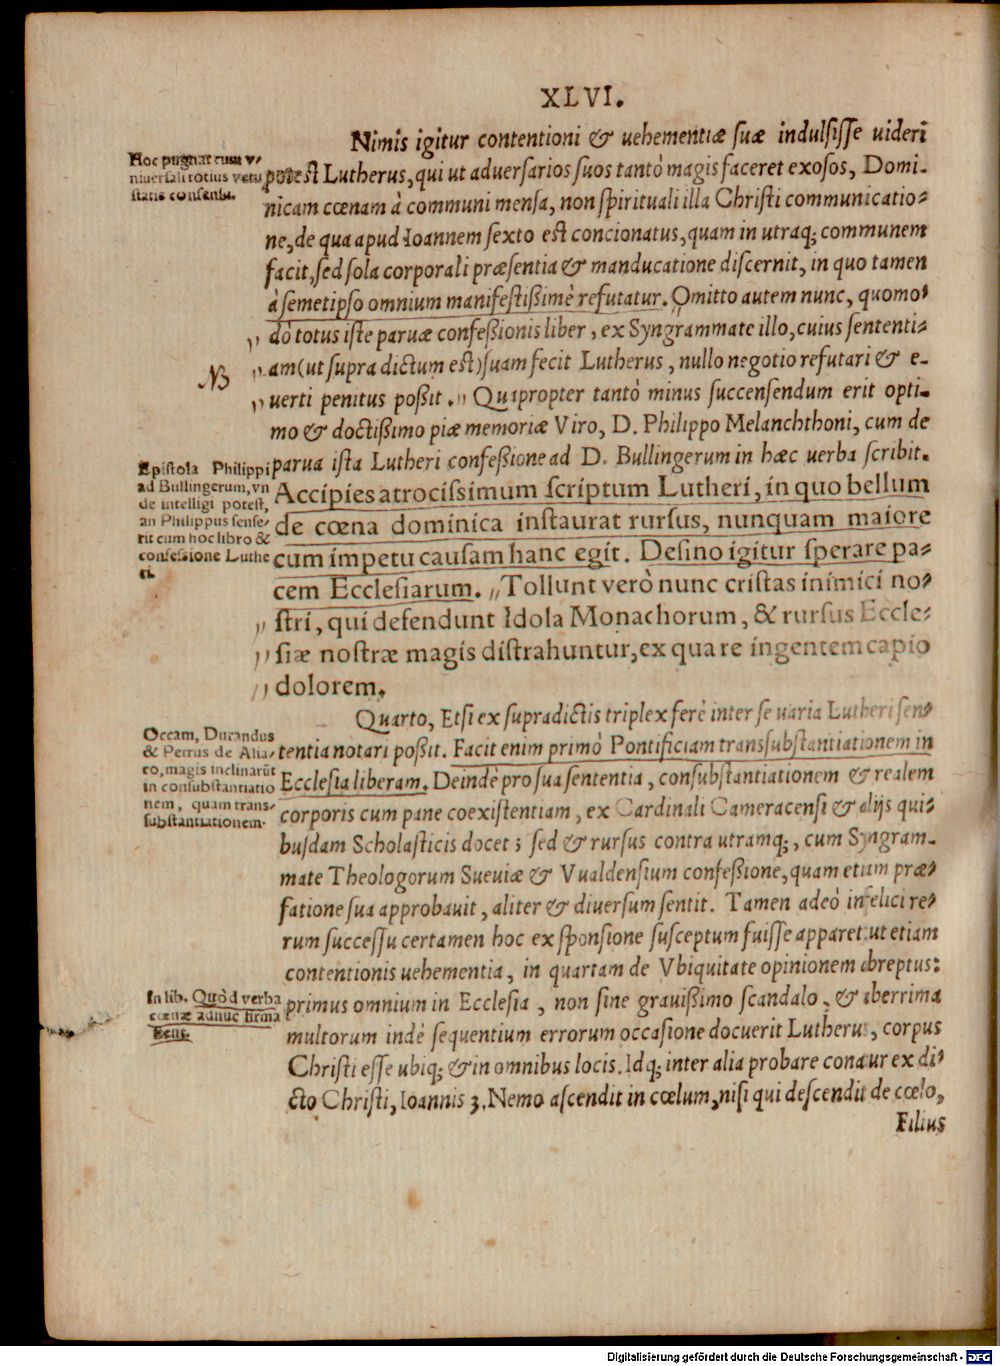 XLVI.
Nimis igitur contentioni & uehementiæ suæ indulsisse uideri
Hoc pugnat cum v-
niuersali totius vetu
statis consensu.
potest Lutherus, qui ut aduersarios suos tantò magis faceret exosos, Domi-
nicam cœnam à communi mensa, non spirituali illa Christi communicatio-
ne, de qua apud Ioannem sexto est concionatus, quam in utraq; communem
facit, sed sola corporali præsentia & manducatione discernit, in quo tamen
à semetipso omnium manifestißimè refutatur. Omitto autem nunc, quomo-
dò totus iste paruæ confeßionis liber, ex Syngrammate illo, cuius sententi-
am (ut supra dictum est) suam fecit Lutherus, nullo negotio refutari & e-
NB
uerti penitus poßit. Quapropter tantò minus succensendum erit opti-
mo & doctißimo piæ memoriæ Viro, D. Philippo Melanchthoni, cum de
Epistola Philippi
ad Bullingerum, vn
de intelligi potest,
an Philippus sense-
rit cum hoc libro &
confessione Luthe
ri.
parua ista Lutheri confeßione ad D. Bullingerum in hæc uerba scribit.
Accipies atrocissimum scriptum Lutheri, in quo bellum
de cœna dominica instaurat rursus, nunquam maiore
cum impetu causam hanc egit. Desino igitur sperare pa-
cem Ecclesiarum. Tollunt verò nunc cristas inimici no-
stri, qui defendunt Idola Monachorum, & rursus Eccle-
siæ nostræ magis distrahuntur, ex qua re ingentem capio
dolorem.
Quarto, Etsi ex supradictis triplex ferè inter se uaria Lutheri sen-
Occam, Durandus
& Petrus de Alia-
co, magis inclinarūt
in consubstantiatio
nem, quam trans-
substantiationem.
tentia notari poßit. Facit enim primò Pontificiam transsubstantiationem in
Ecclesia liberam. Deindè pro sua sententia, consubstantiationem & realem
corporis cum pane coexistentiam, ex Cardinali Cameracensi & alijs qui-
busdam Scholasticis docet; sed & rursus contra utramq;, cum Syngram-
mate Theologorum Sueuiæ & Vualdensium confeßione, quam etiam præ-
fatione sua approbauit, aliter & diuersum sentit. Tamen adeò infelici re-
rum successu certamen hoc ex sponsione susceptum fuisse apparet: ut etiam
contentionis uehementia, in quartam de Vbiquitate opinionem abreptus:
In lib. Quòd verba
cœnæ adhuc firma
stent.
primus omnium in Ecclesia, non sine grauißimo scandalo, & uberrima
multorum indè sequentium errorum occasione docuerit Lutherus, corpus
Christi esse ubiq; & in omnibus locis. Idq; inter alia probare conatur ex di-
cto Christi, Ioannis 3. Nemo ascendit in cœlum, nisi qui descendit de cœlo,
Filius
Digitalisierung gefördert durch die Deutsche Forschungsgemeinschaft - DFG